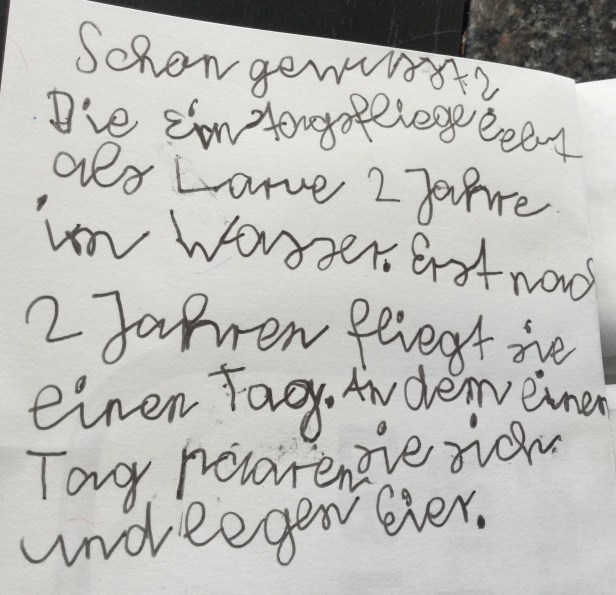 Schon gewusst?
Die Eintagsfliege lebt
als Larve 2 Jahre
im Wasser. Erst nach
2 Jahren fliegt sie
einen Tag. An dem einen
Tag paaren sie sich
und legen Eier.